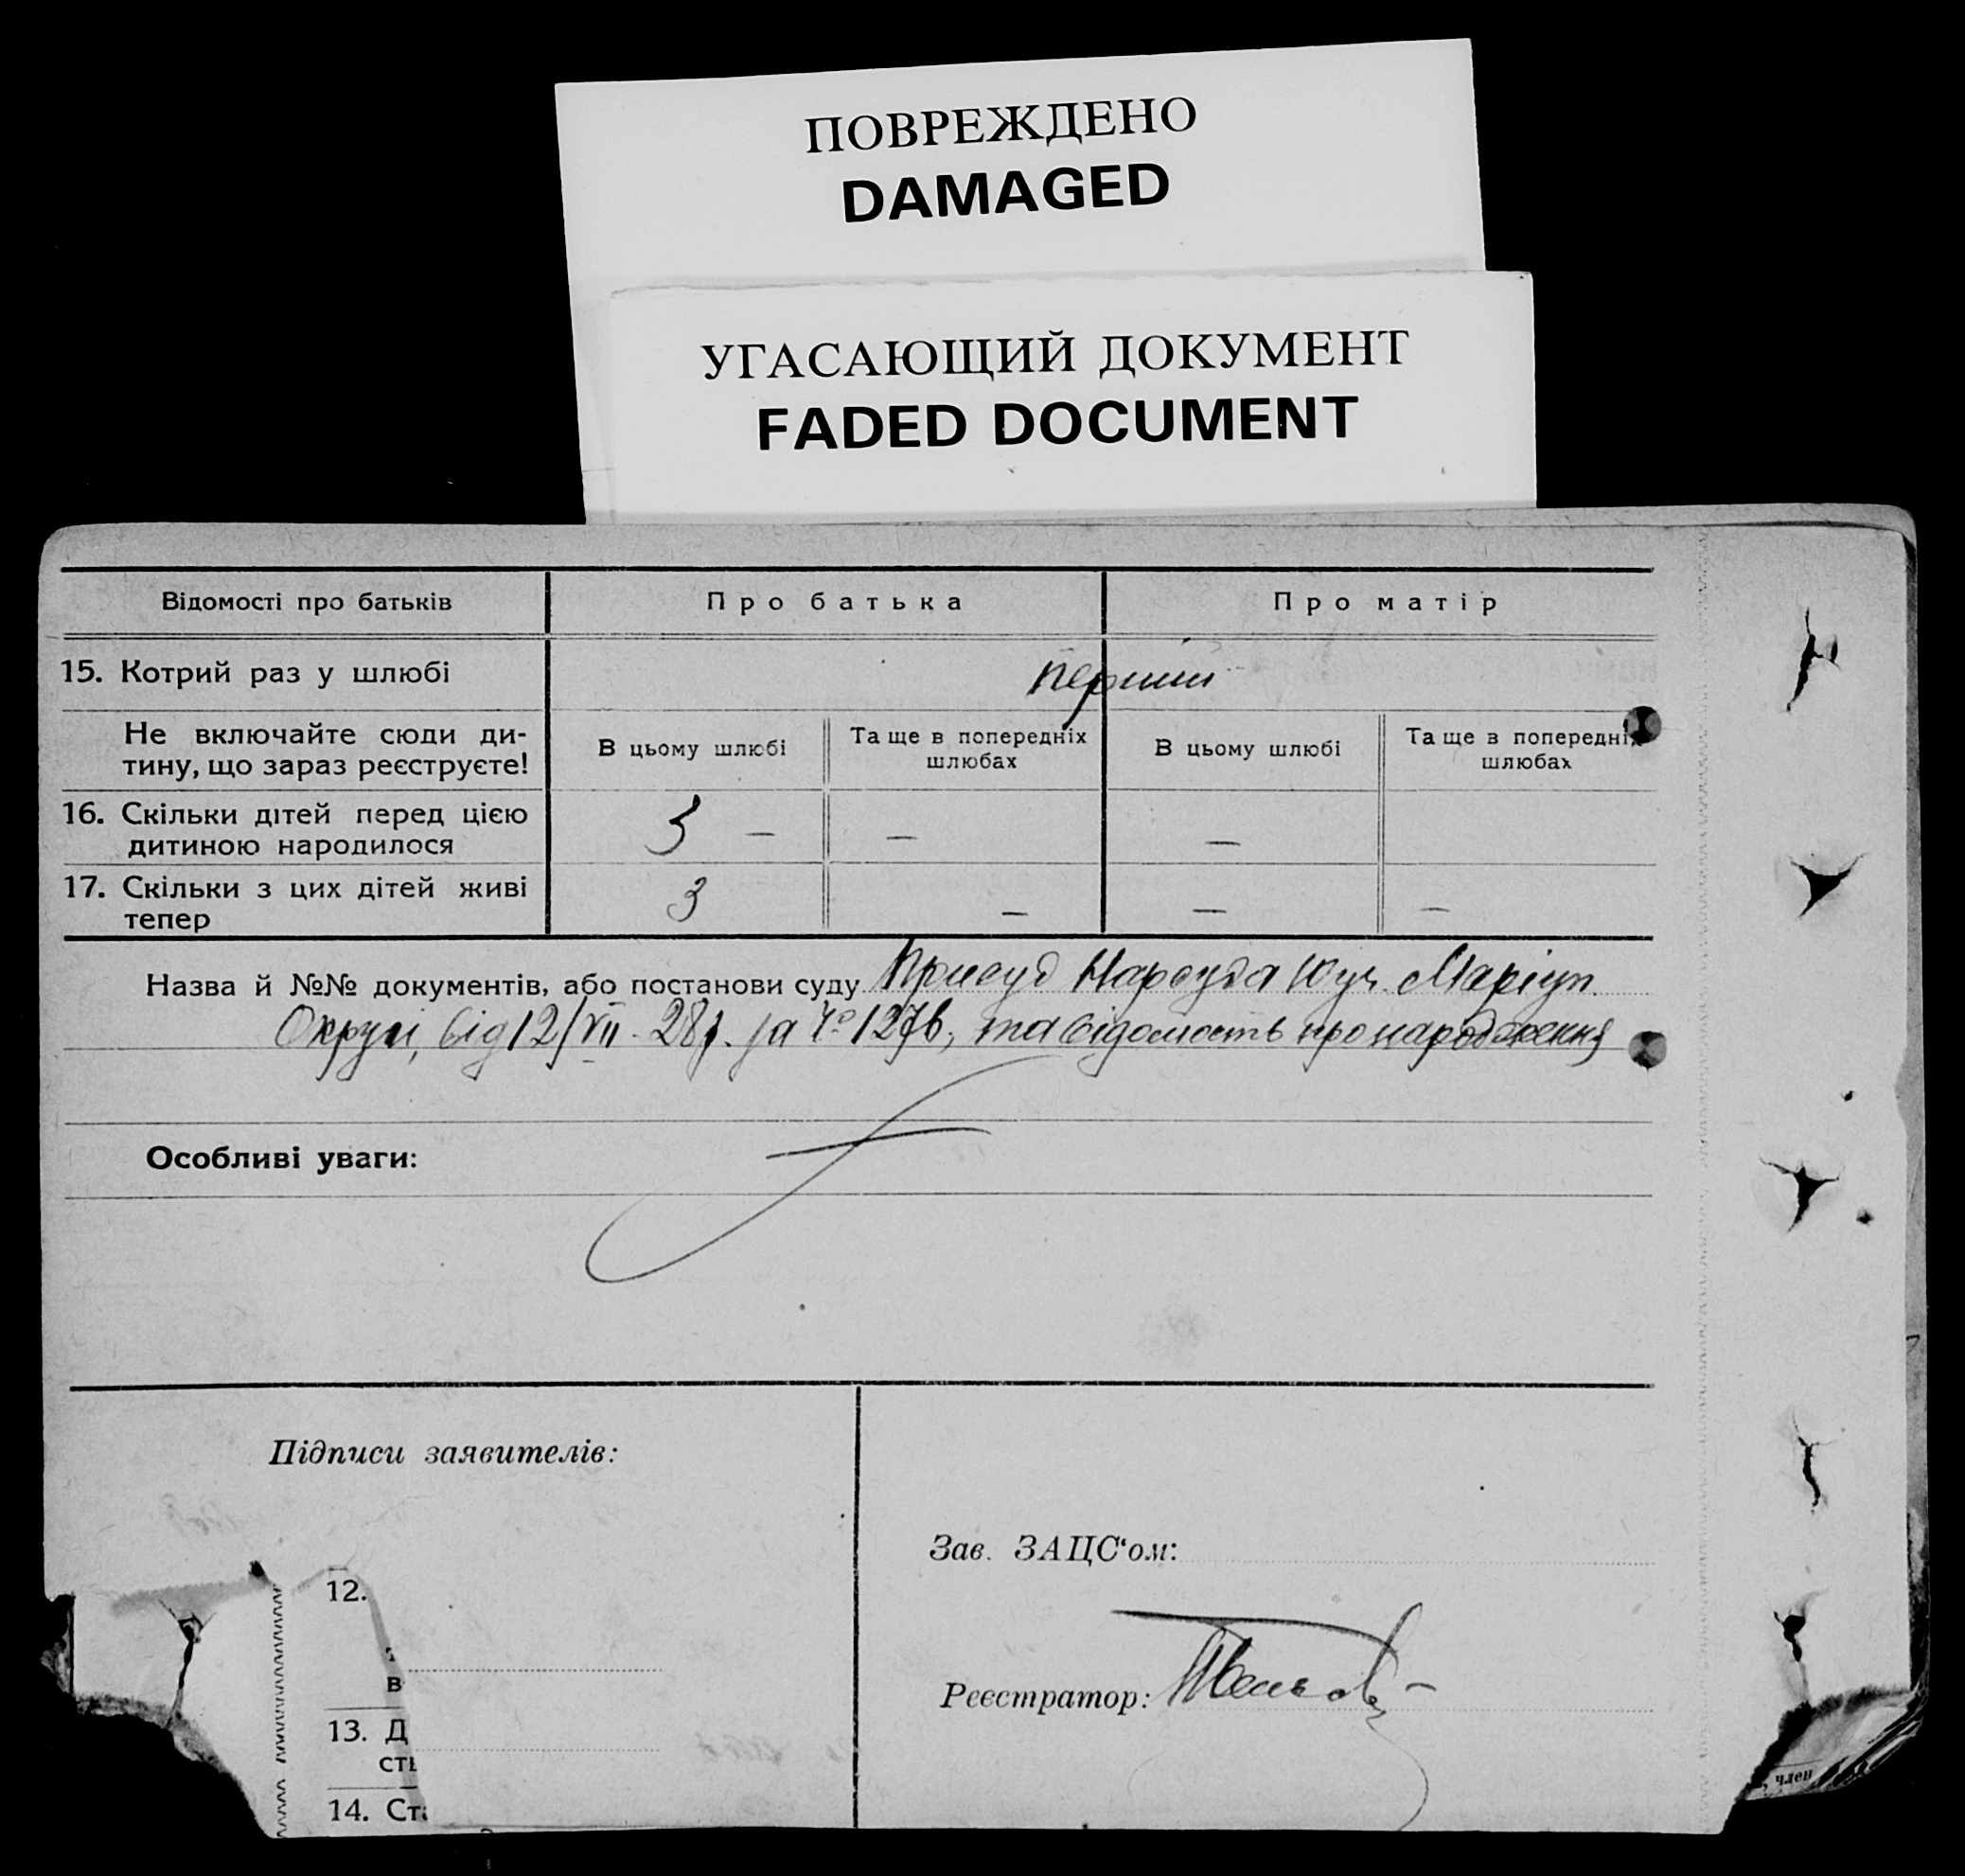 ПОВРЕЖДЕНО
DAMAGED
УГАСАЮЩИЙ ДОКУМЕНТ
FADED DOCUMENT
Відомості про батьків
Про батька
Про матір
15. Котрий раз у шлюбі
перший
Не включайте сюди ди-
тину, що зараз реєструєте!
В цьому шлюбі
Та ще в попередніх
шлюбах
В цьому шлюбі
Та ще в попередніх
шлюбах
16. Скільки дітей перед цією
дитиною народилося
3 — — —
17. Скільки з цих дітей живі
тепер
3 — — —
Назва й №№ документів, або постанови суду Присуд Нарсуда 10 уч. Маріуп.
Округи, від 12/VII - 28 р. за Чо, та відомость про народження
Особливі уваги:
Підписи заявителів:
Зав. ЗАЦС‘ом:
Реєстратор:
12.
в
13. Д
сть
14. Ста
, член